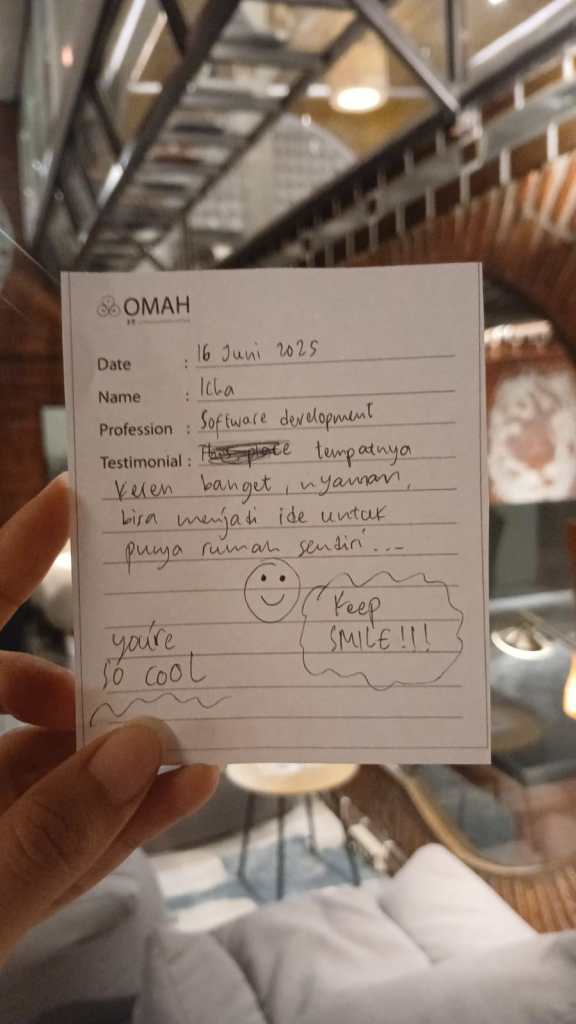 OMAH
Date : 16 Juni 2025
Name : Icha
Profession : Software development
Testimonial : tempatnya
keren banget, nyaman,
bisa menjadi ide untuk
punya rumah sendiri...
Keep
SMILE!!!
you're
so cool